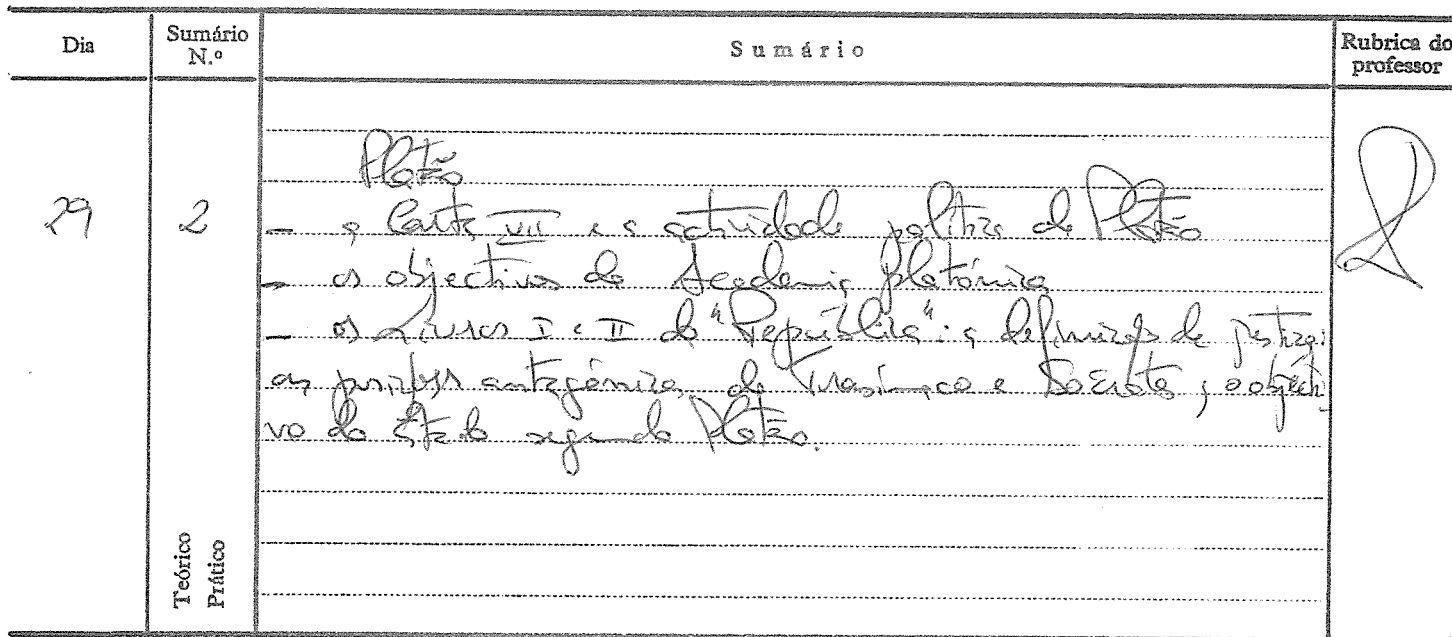 Dia
Sumário N.º
Sumário
Rubrica do professor
29
2
Teórico
Prático
Platão
- a Carta VII e a actividade política de Platão
- os objectivos da Academia platónica
- os Livros I e II da "República": a definição de justiça;
as posições antagónicas de Trasímaco e Sócrates; o objecti
vo do Estado segundo Platão.